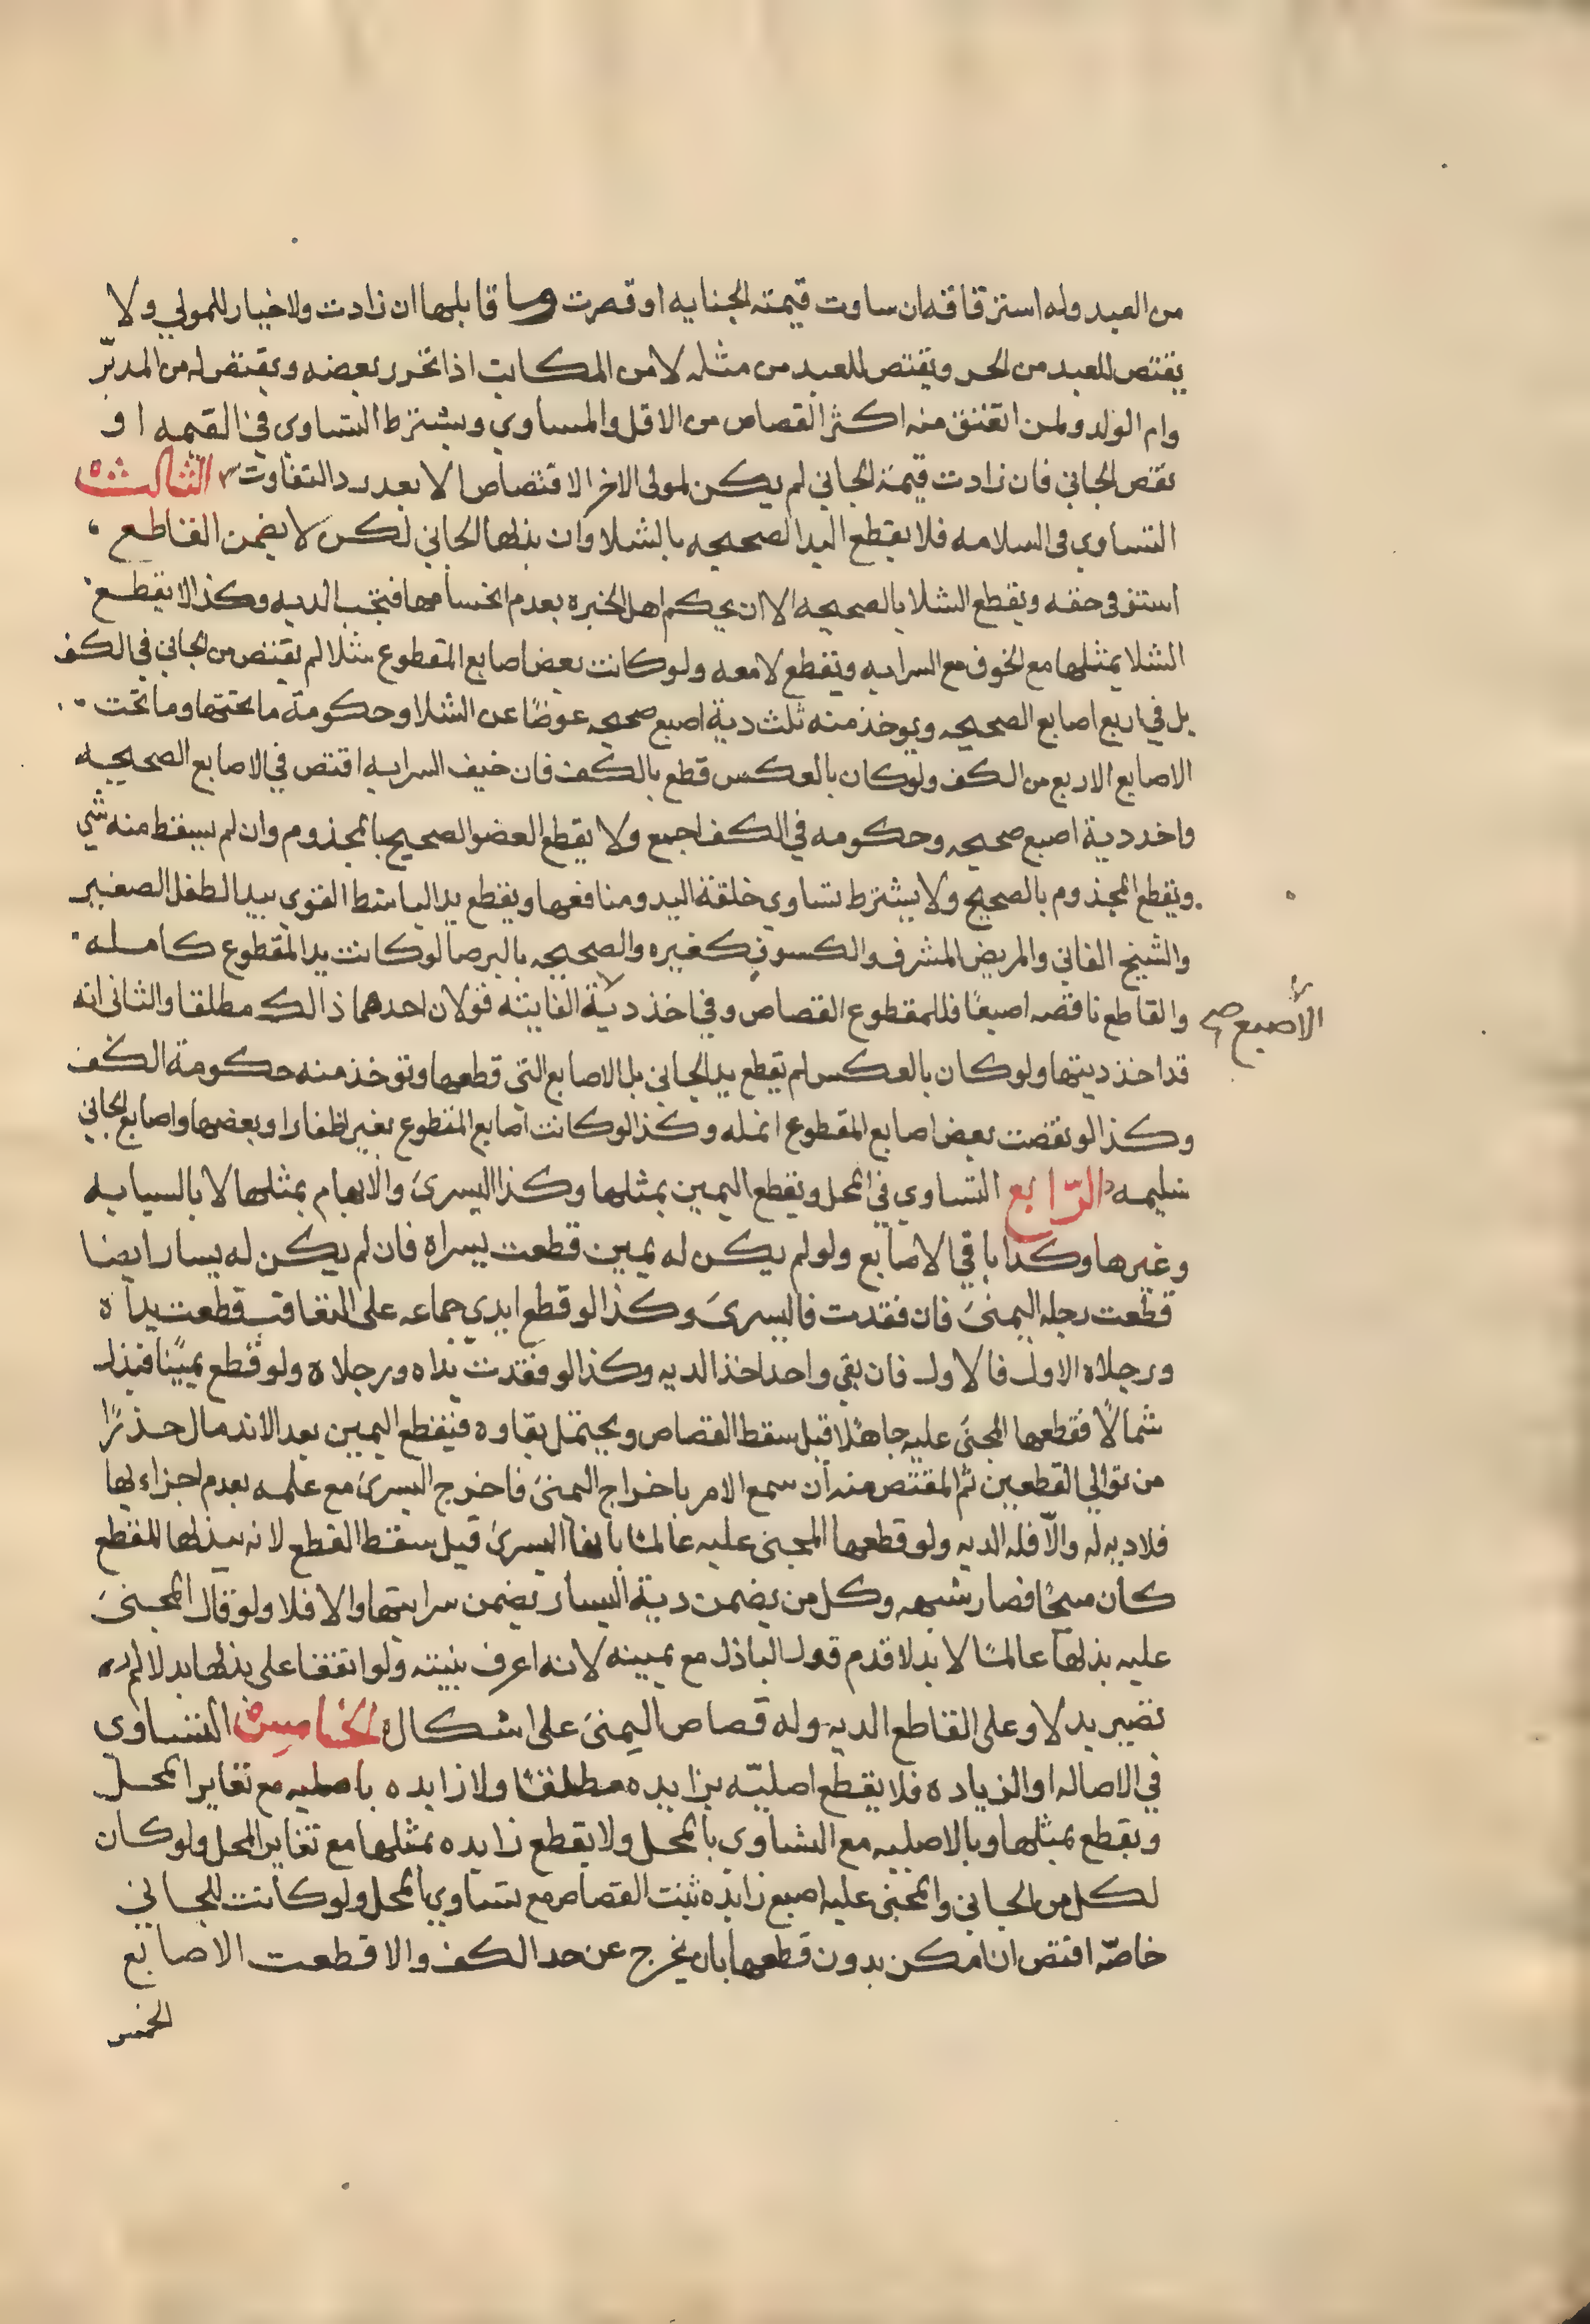 من العبد وله استرقاقه ان ساوت قيمته الجنايه او قصرت وما قابلها ان زادت ولا خيار للمولي ولا
يقتص للعبد من الحر ويقتص للعبد من مثله لا من المكاتب اذا تحرر بعضه ويقتص له من المدبّر
وام الولد ولمن انعتق منه اكثر القصاص من الاقل والمساوي ويشترط التساوي في القيمه او
نقص الجاني فان زادت قيمة الجاني لم يكن لمولى الاخر الاقتصاص الا بعد رد التفاوت الثالث
التساوي في السلامه فلا يقطع اليد الصحيحه بالشلا وان بذلها الجاني لكن لا يضمن القاطع
استوفى حقه ويقطع الشلا بالصحيحه الا ان يحكم اهل الخبره بعدم انحسامها فتجب الديه وكذا لا يقطع
الشلا بمثلها مع الخوف مع السرايه وتقطع لا معه ولو كانت بعض اصابع المقطوع شلا لم يقتص من الجاني في الكف
بل في اربع اصابع الصحيحه ويوخذ منه ثلث دية اصبع صحيحه عوضًا عن الشلا وحكومة ما تحتها وما تحت
الاصابع الاربع من الكف ولو كان بالعكس قطع بالكف فان خيف السرايه اقتص في الاصابع الصحيحه
واخد دية اصبع صحيحه وحكومه في الكف اجمع ولا يقطع العضو الصحيح بالمجذوم وان لم يسقط منه شي
ويقطع المجذوم بالصحيح ولا يشترط تساوي خلقة اليد ومنافعها ويقطع يد الباشط القوي بيد الطفل الصغير
والشيخ الفاني والمريض المشرف والكسوب كغيره والصحيحه بالبرصا لو كانت يد المقطوع كامله
والقاطع ناقصه اصبعًا فللمقطوع القصاص وفي اخذ دية الفايته قولان احدهما ذالك مطلقا والثاني انه
الاصبع صح
قد اخذ ديتها ولو كان بالعكس لم يقطع يد الجاني بل الاصابع التي قطعها وتوخذ منه حكومة الكف
وكذا لو نقصت بعض اصابع المقطوع انمله وكذا لو كانت اصابع المقطوع بغير اظفار او بعضها واصابع الجاني
سليمه الرّابع التساوي في المحل ويقطع اليمين بمثلها وكذا اليسرىَ والابهام بمثلها لا بالسبابه
وغيرها وكذا باقي الاصابع ولو لم يكن له يمين قطعت يسراه فان لم يكن له يسار ايضا
قطعت رجله اليمنىَ فان فقدت فاليسرىَ وكذا لو قطع ايدي جماعه على التعاقب قطعت يداه
ورجلاه الاول فالاول فان بقي واحد اخذ الديه وكذا لو فقدت يداه ورجلاه ولو قطع يمينًا فبذل
شمالًا فقطعها المجنىَ عليه جاهلًا قيل سقط القصاص ويحتمل بقاوه فيقطع اليمين بعد الاندمال حذرًا
من توالي القطعين ثم المقتص منه ان سمع الامر باخراج اليمنىَ فاخرج اليسرىَ مع علمه بعدم اجزاءيها
فلا ديه له والّا فله الديه ولو قطعها المجنى عليه عالمًا بانها اليسرىَ قيل سقط القطع لانه يبذلها للقطع
كان مبيحًا فصار شبهه وكل من يضمن دية اليسار يضمن سرايتها والا فلا ولو قال المجنىَ
عليه بذلها عالمًا لا بدلا قدم قول الباذل مع يمينه لانه اعرف بنيته ولو اتفقا على بذلها بدلا لم
تصير بدلا وعلى القاطع الديه وله قصاص اليمنىَ على اشكال الخامس التساوي
في الاصاله او الزياده فلا يقطع اصليّه بزايده مطلقًا ولا زايده باصليه مع تغاير المحل
ويقطع بمثلها وبالاصليه مع التساوي بالمحل ولا يقطع زايده بمثلها مع تغاير المحل ولو كان
لكل من الجاني والمجني عليه اصبع زايده ثبت القصاص مع تساوي المحل ولو كانت للجاني
خاصّه اقتص ان امكن بدون قطعها بان يخرج عن حد الكف والا قطعت الاصابع
الخمس